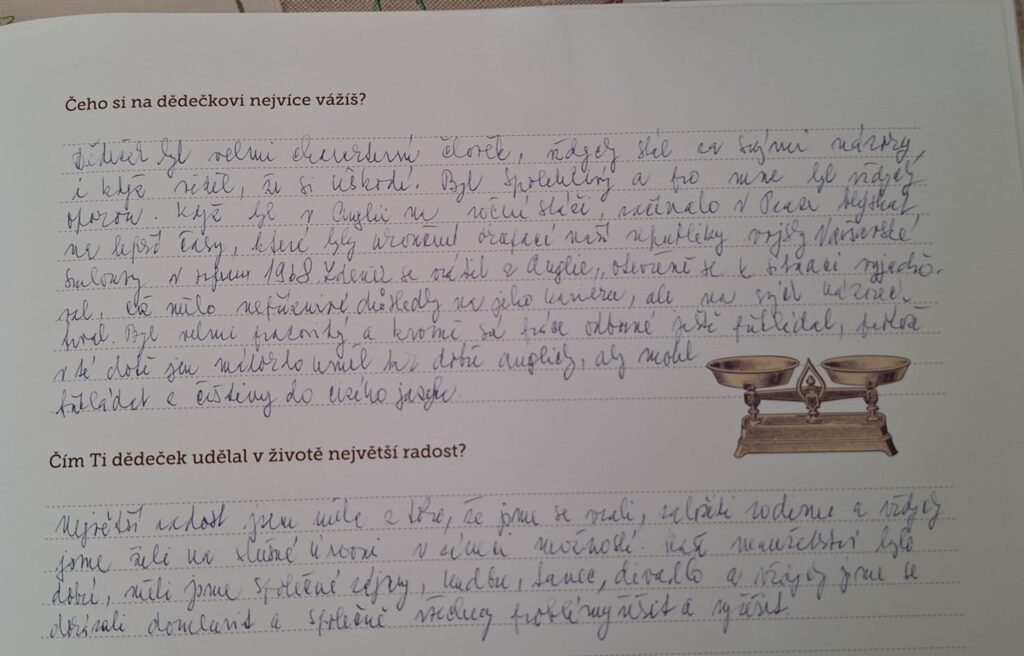 Čeho si na dědečkovi nejvíce vážíš?
Dědeček byl velmi charakterní člověk, vždycky stál za svými názory,
i když věděl, že si uškodí. Byl spolehlivý a pro mne byl vždycky
oporou. Když byl v Anglii na roční stáži, začínalo v Praze blýskat
na lepší časy, které byly ukončené okupací naší republiky vojsky Varšavské
smlouvy v srpnu 1968. Zdeněk se vrátil z Anglie, otevřeně se k situaci vyjadřo-
val, což mělo nepříznivé důsledky na jeho kariéru, ale na svých názorech
trval. Byl velmi pracovitý a kromě své práce odborné ještě překládal, protože
v té době jen málokdo uměl tak dobře anglicky, aby mohl
překládat z češtiny do cizího jazyka
Čím Ti dědeček udělal v životě největší radost?
Největší radost jsem měla z toho, že jsme se vzali, založili rodinu a vždycky
jsme žili na slušné úrovni v rámci možností. Naše manželství bylo
dobré, měli jsme společné zájmy, hudbu, tanec, divadlo a vždycky jsme se
dokázali domluvit a společně všechny problémy řešit a vyřešit.